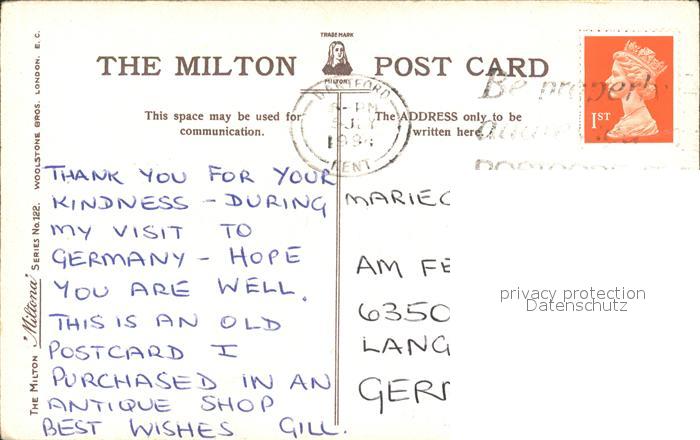 TRADE MARK
MILTON
THE MILTON POST CARD
This space may be used for
communication.
The ADDRESS only to be
written here.
DARTFORD
KENT
Be properly
1ST
THANK YOU FOR YOUR
KINDNESS – DURING
MY VISIT TO
GERMANY – HOPE
YOU ARE WELL.
THIS IS AN OLD
POSTCARD I
PURCHASED IN AN
ANTIQUE SHOP
BEST WISHES GILL.
MARIEC
AM FE
6350
LANG
GER
privacy protection
Datenschutz
THE MILTON "Miltona" SERIES No. 122. WOOLSTONE BROS. LONDON. E.C.